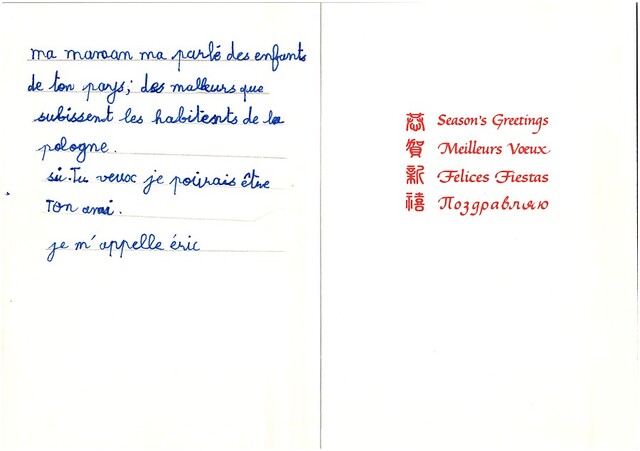 ma maman ma parlé des enfants
de ton pays; des malleurs que
subissent les habitents de la
pologne.
si.Tu veux je pourais être
Ton ami.
je m'appelle éric
恭賀新禧
Season's Greetings
Meilleurs Vœux
Felices Fiestas
Поздравляю